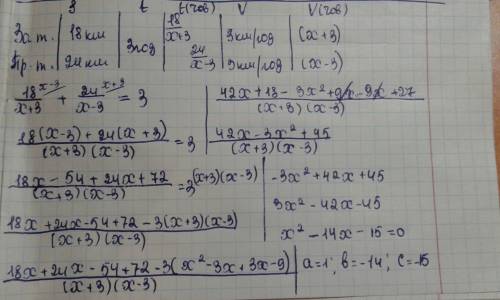 S t t(чов) V V(чов)
За т. 18 км 3 год 18/x+3 3 км/год (x+3)
Пр. т. 24 км 24/x-3 3 км/год (x-3)
18^x-3/x+3 + 24^x+3/x-3 = 3
18(x-3)+24(x+3)/(x+3)(x-3) = 3
18x-54+24x+72/(x+3)(x-3) = 3^(x+3)(x-3)
18x+24x-54+72-3(x+3)(x-3)/(x+3)(x-3)
18x+24x-54+72-3(x²-3x+3x-9)/(x+3)(x-3)
42x+18-3x²+9x-9x+27/(x+3)(x-3)
42x-3x²+45/(x+3)(x-3)
-3x²+42x+45
3x²-42x-45
x²-14x-15=0
a=1; b=-14; c=-15